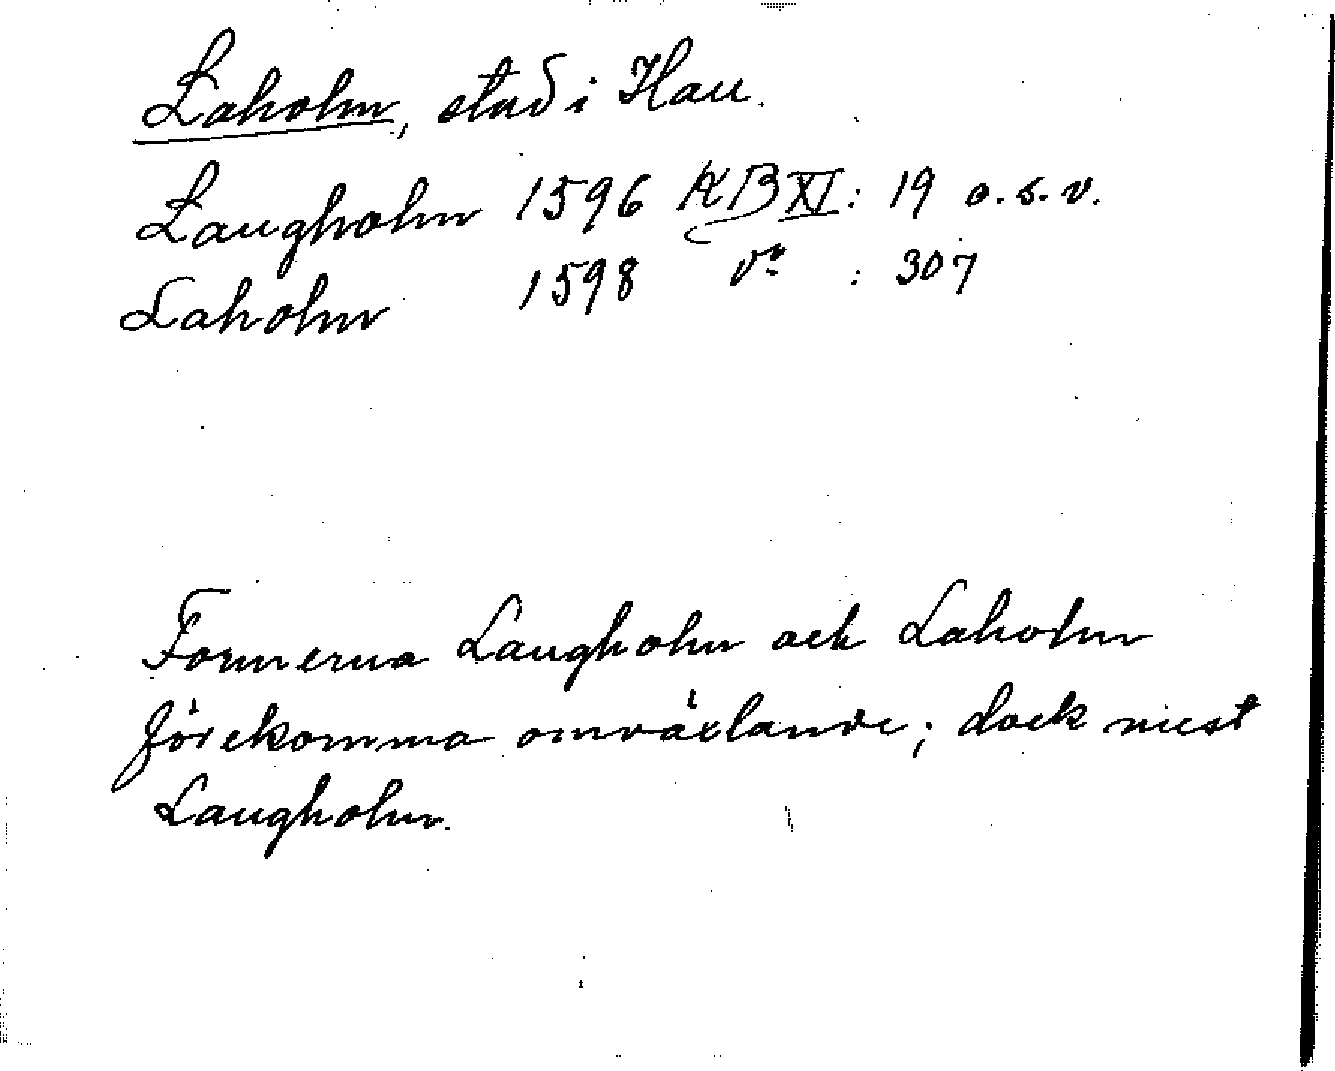 Laholm, stad i Hall.
Laugholm 1596 KB XI: 19 o.s.v.
Laholm 1598 : 307
Formerna Laugholm och Laholm
förekomma omväxlande; dock mest
Laugholm.